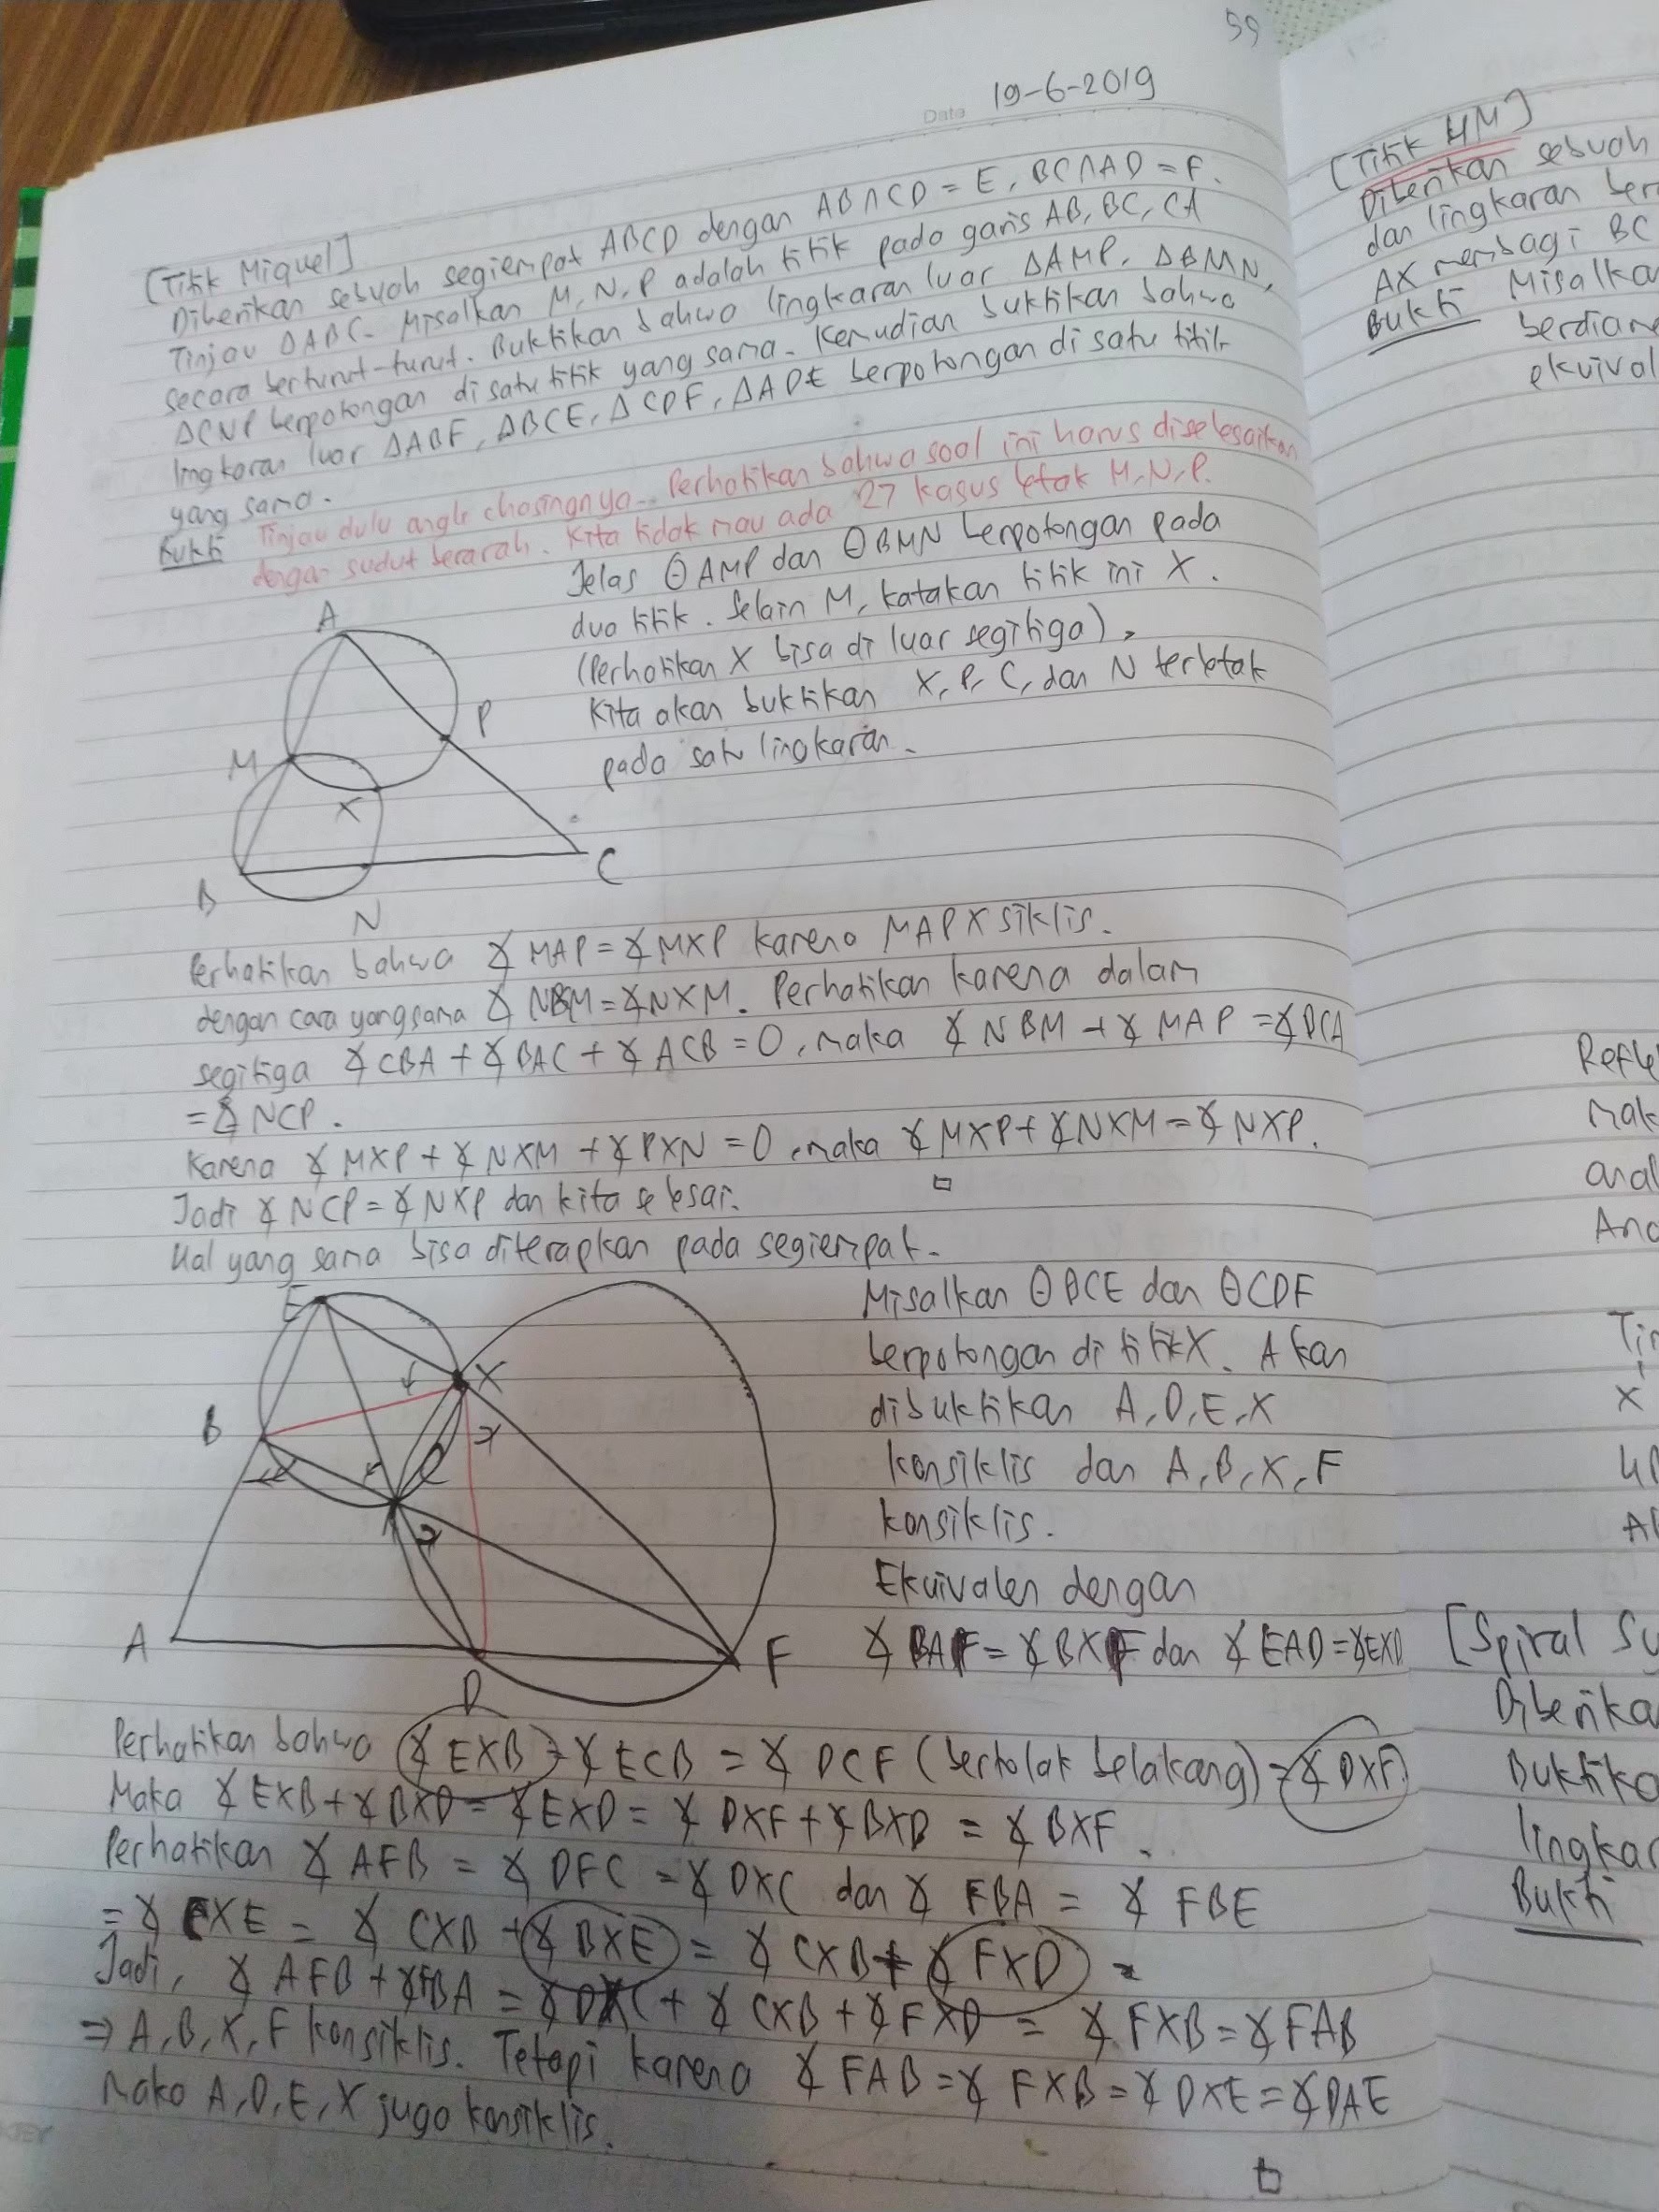 59
Date 19-6-2019
[Titik Miquel]
Diberikan sebuah segiempat ABCD dengan AB∩CD = E, BC∩AD = F.
Tinjau ΔABC. Misalkan M, N, P adalah titik pada garis AB, BC, CA
secara berturut-turut. Buktikan bahwa lingkaran luar ΔAMP, ΔBMN,
ΔCNP berpotongan di satu titik yang sama. Kemudian buktikan bahwa
lingkaran luar ΔABF, ΔBCE, ΔCDF, ΔADE berpotongan di satu titik
yang sama.
Bukti Tinjau dulu angle chasingnya.. Perhatikan bahwa soal ini harus diselesaikan
dengan sudut berarah. Kita tidak mau ada 27 kasus letak M, N, P.
Jelas ⊙AMP dan ⊙BMN berpotongan pada
dua titik. Selain M, katakan titik ini X.
(Perhatikan X bisa di luar segitiga),
Kita akan buktikan X, P, C, dan N terletak
pada satu lingkaran.
A
M
P
X
B
N
C
Perhatikan bahwa ∡MAP = ∡MXP karena MAPX siklis.
dengan cara yang sama ∡NBM = ∡NXM. Perhatikan karena dalam
segitiga ∡CBA + ∡BAC + ∡ACB = 0, maka ∡NBM + ∡MAP = ∡BCA
= ∡NCP.
Karena ∡MXP + ∡NXM + ∡PXN = 0, maka ∡MXP + ∡NXM = ∡NXP.
Jadi ∡NCP = ∡NXP dan kita selesai. □
Hal yang sama bisa diterapkan pada segiempat.
E
X
B
A
D
F
Misalkan ⊙BCE dan ⊙CDF
berpotongan di titik X. Akan
dibuktikan A, D, E, X
konsiklis dan A, B, X, F
konsiklis.
Ekuivalen dengan
∡BAF = ∡BXF dan ∡EAD = ∡EXD
Perhatikan bahwa ∡EXB = ∡ECB = ∡DCF (bertolak belakang) = ∡DXF.
Maka ∡EXB + ∡BXD = ∡EXD = ∡DXF + ∡BXD = ∡BXF.
Perhatikan ∡AFB = ∡DFC = ∡DXC dan ∡FBA = ∡FBE
= ∡CXE = ∡CXB + ∡BXE = ∡CXB + ∡FXD
Jadi, ∡AFB + ∡FBA = ∡DXC + ∡CXB + ∡FXD = ∡FXB = ∡FAB
⇒ A, B, X, F konsiklis. Tetapi karena ∡FAB = ∡FXB = ∡DXE = ∡DAE
maka A, D, E, X juga konsiklis.
□
[Titik HM]
Diberikan sebuah
dan lingkaran
AX membagi BC
Bukti Misalka
ekuival
[Spiral
Bukti